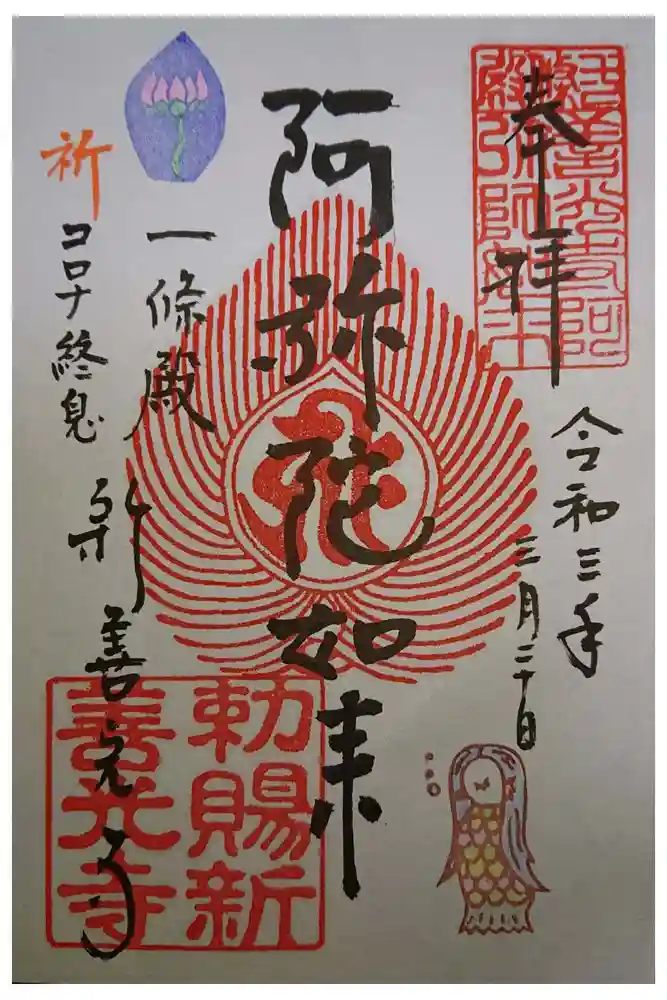 奉拝
令和三年
三月二十日
阿弥陀如来
一條殿
祈
コロナ終息
新善光寺
勅賜新
善光寺